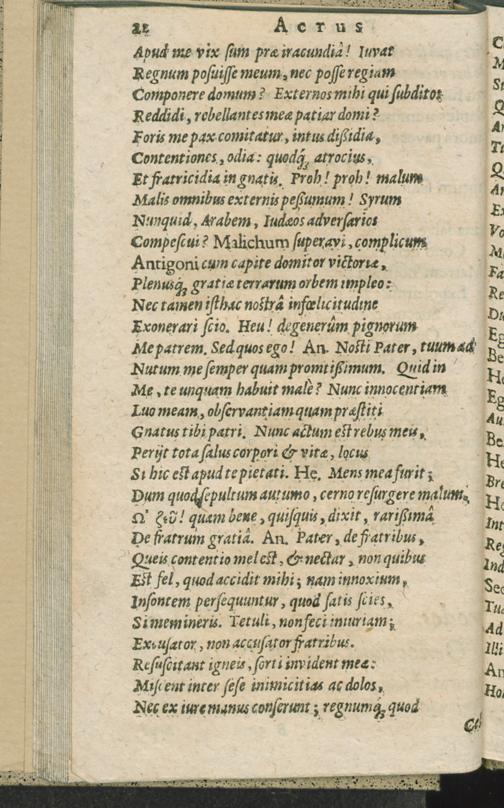 22 ACTUS
Apud me vix sum præ iracundiâ! Iuvat
Regnum posuisse meum, nec posse regiam
Componere domum? Externos mihi qui subditos
Reddidi, rebellantes meæ patiar domi?
Foris me pax comitatur, intus dißidia,
Contentiones, odia: quodq́; atrocius,
Et fratricidia in gnatis. Proh! proh! malum
Malis omnibus externis peßumum! Syrum
Nunquid, Arabem, Iudæos adversarios
Compescui? Malichum superavi, complicum
Antigoni cum capite domitor victoriæ,
Plenusq́; gratiæ terrarum orbem impleo:
Nec tamen isthac nostrâ infœlicitudine
Exonerari scio. Heu! degenerûm pignorum
Me patrem. Sed quos ego! An. Nosti Pater, tuum ad
Nutum me semper quam promtißimum. Quid in
Me, te unquam habuit malè? Nunc innocentiam
Luo meam, observantiam quam præstiti
Gnatus tibi patri. Nunc actum est rebus meis,
Perijt tota salus corpori & vitæ, locus
Si hic est apud te pietati. He. Mens mea furit;
Dum quod sepultum autumo, cerno resurgere malum.
Ω' ζεῦ! quam bene, quisquis, dixit, rarißimâ
De fratrum gratiâ. An. Pater, de fratribus,
Queis contentio mel est, & nectar, non quibus
Est fel, quod accidit mihi; nam innoxium,
Insontem persequuntur, quod satis scies,
Si memineris. Tetuli, non feci iniuriam;
Excusator, non accusator fratribus.
Resuscitant igneis, sorti invident meæ:
Miscent inter sese inimicitias ac dolos,
Nec ex iure manus conserunt; regnumq́; quod